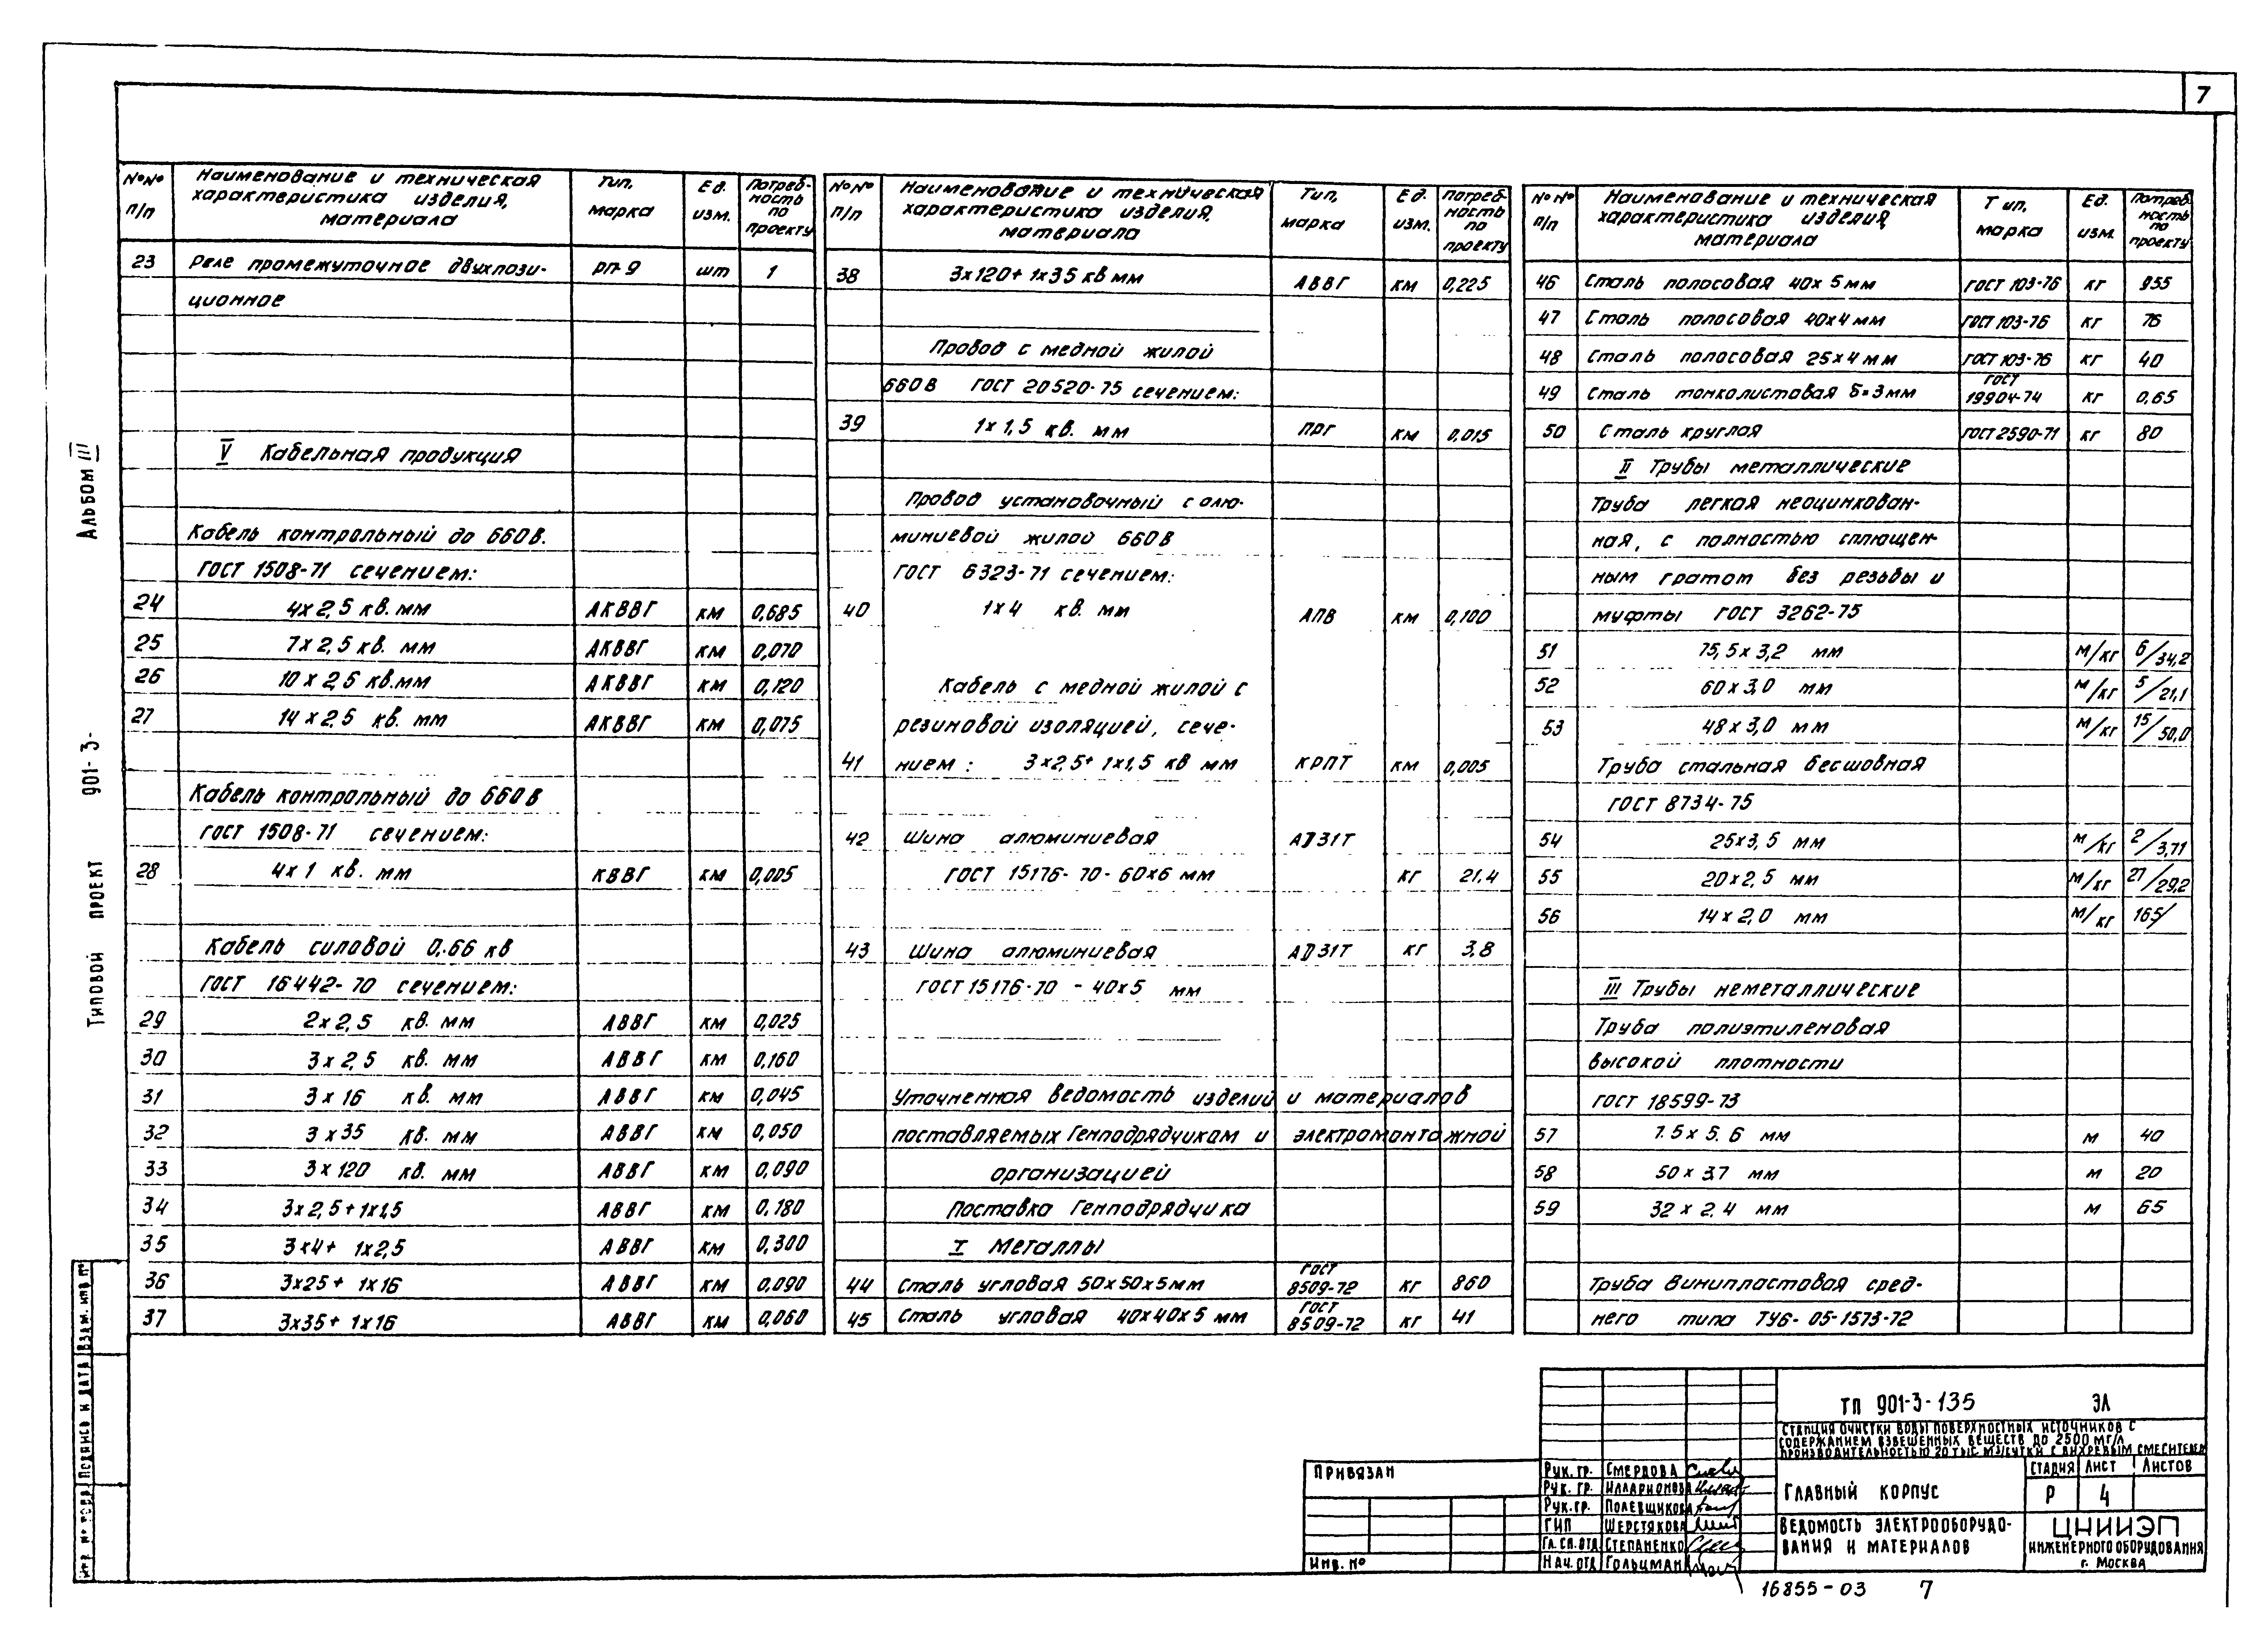 7
Альбом III
Типовой проект 901-3-
№№ п/п | Наименование и техническая характеристика изделия, материала | Тип, марка | Ед. изм. | Потребность по проекту
23 | Реле промежуточное двухпози- | РП-9 | шт | 1
ционное
V Кабельная продукция
Кабель контрольный до 660В.
ГОСТ 1508-71 сечением:
24 | 4х2,5 кв.мм | АКВВГ | км | 0,685
25 | 7х2,5 кв. мм | АКВВГ | км | 0,070
26 | 10х2,5 кв.мм | АКВВГ | км | 0,120
27 | 14х2,5 кв. мм | АКВВГ | км | 0,075
Кабель контрольный до 660В
ГОСТ 1508-71 сечением:
28 | 4х1 кв. мм | КВВГ | км | 0,005
Кабель силовой 0.66 кв
ГОСТ 16442-70 сечением:
29 | 2х2,5 кв. мм | АВВГ | км | 0,025
30 | 3х2,5 кв. мм | АВВГ | км | 0,160
31 | 3х16 кв. мм | АВВГ | км | 0,045
32 | 3х35 кв. мм | АВВГ | км | 0,050
33 | 3х120 кв. мм | АВВГ | км | 0,090
34 | 3х2,5+1х1,5 | АВВГ | км | 0,180
35 | 3х4+ 1х2,5 | АВВГ | км | 0,300
36 | 3х25+ 1х16 | АВВГ | км | 0,090
37 | 3х35+ 1х16 | АВВГ | км | 0,060
№№ п/п | Наименование и техническая характеристика изделия, материала | Тип, марка | Ед. изм. | Потребность по проекту
38 | 3х120+ 1х35 кв мм | АВВГ | км | 0,225
Провод с медной жилой
660В ГОСТ 20520-75 сечением:
39 | 1х1,5 кв. мм | ПРГ | км | 0,015
Провод установочный с алю-
миниевой жилой 660В
ГОСТ 6323-71 сечением:
40 | 1х4 кв. мм | АПВ | км | 0,100
Кабель с медной жилой с
резиновой изоляцией, сече-
41 | нием: 3х2,5+ 1х1,5 кв мм | КРПТ | км | 0,005
42 | Шина алюминиевая | АД31Т
ГОСТ 15176-70-60х6 мм | кг | 21.4
43 | Шина алюминиевая | АД31Т | кг | 3,8
ГОСТ 15176-70 - 40х5 мм
Уточненная ведомость изделий и материалов
поставляемых Генподрядчикам и электромонтажной
организацией
Поставка Генподрядчика
I Металлы
44 | Сталь угловая 50х50х5мм | ГОСТ 8509-72 | кг | 860
45 | Сталь угловая 40х40х5 мм | ГОСТ 8509-72 | кг | 41
№№ п/п | Наименование и техническая характеристика изделия, материала | Тип, марка | Ед. изм. | Потребность по проекту
46 | Сталь полосовая 40х5мм | ГОСТ 103-76 | кг | 955
47 | Сталь полосовая 40х4мм | ГОСТ 103-76 | кг | 76
48 | Сталь полосовая 25х4мм | ГОСТ 103-76 | кг | 40
49 | Сталь тонколистовая б=3мм | ГОСТ 19904-74 | кг | 0,65
50 | Сталь круглая | ГОСТ 2590-71 | кг | 80
II Трубы металлические
Труба легкая неоцинкован-
ная, с полностью сплющен-
ным гратом без резьбы и
муфты ГОСТ 3262-75
51 | 75,5х3,2 мм | м/кг | 6/34,2
52 | 60х3,0 мм | м/кг | 5/21,1
53 | 48х3,0 мм | м/кг | 15/50,0
Труба стальная бесшовная
ГОСТ 8734-75
54 | 25х3,5 мм | м/кг | 2/3,71
55 | 20х2,5 мм | м/кг | 27/29,2
56 | 14х2,0 мм | м/кг | 165/
III Трубы неметаллические
Труба полиэтиленовая
высокой плотности
ГОСТ 18599-73
57 | 7.5х5.6 мм | м | 40
58 | 50х3.7 мм | м | 20
59 | 32х2.4 мм | м | 65
Труба винипластовая сред-
него типа ТУ6-05-1573-72
ТП 901-3-135 ЭЛ
Станция очистки воды поверхностных источников с
содержанием взвешенных веществ до 2500 мг/л
производительностью 20 тыс. м3/сутки с вихревым смесителем
Привязан
Инв. №
Рук. гр. Смердова
Рук. гр. Илларионова
Рук. гр. Полевщикова
ГИП Шерстякова
Гл. сп. отд Степаненко
Нач. отд Гольцман
Главный корпус
Стадия Лист Листов
Р 4
Ведомость электрооборудо-
вания и материалов
ЦНИИЭП
инженерного оборудования
г. Москва
Инв. № подл Подпись и дата Взам. инв №
16855-03 7